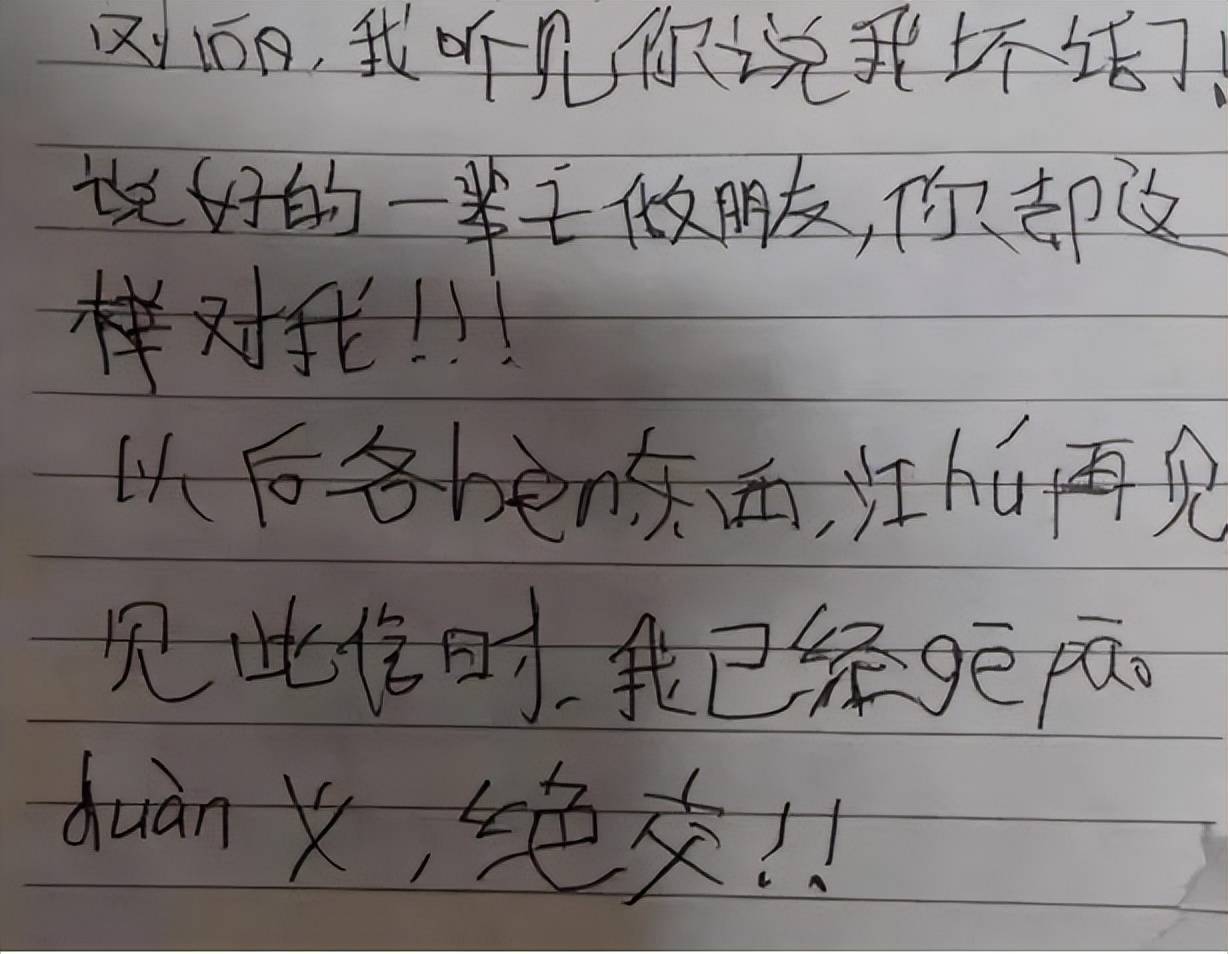 刘陌, 我听见你说我坏话了!
说好的一辈子做朋友,你却这
样对我!!!
以后各bèn东西,江hú再见
见此信时.我已经gē páo
duàn义,绝交!!